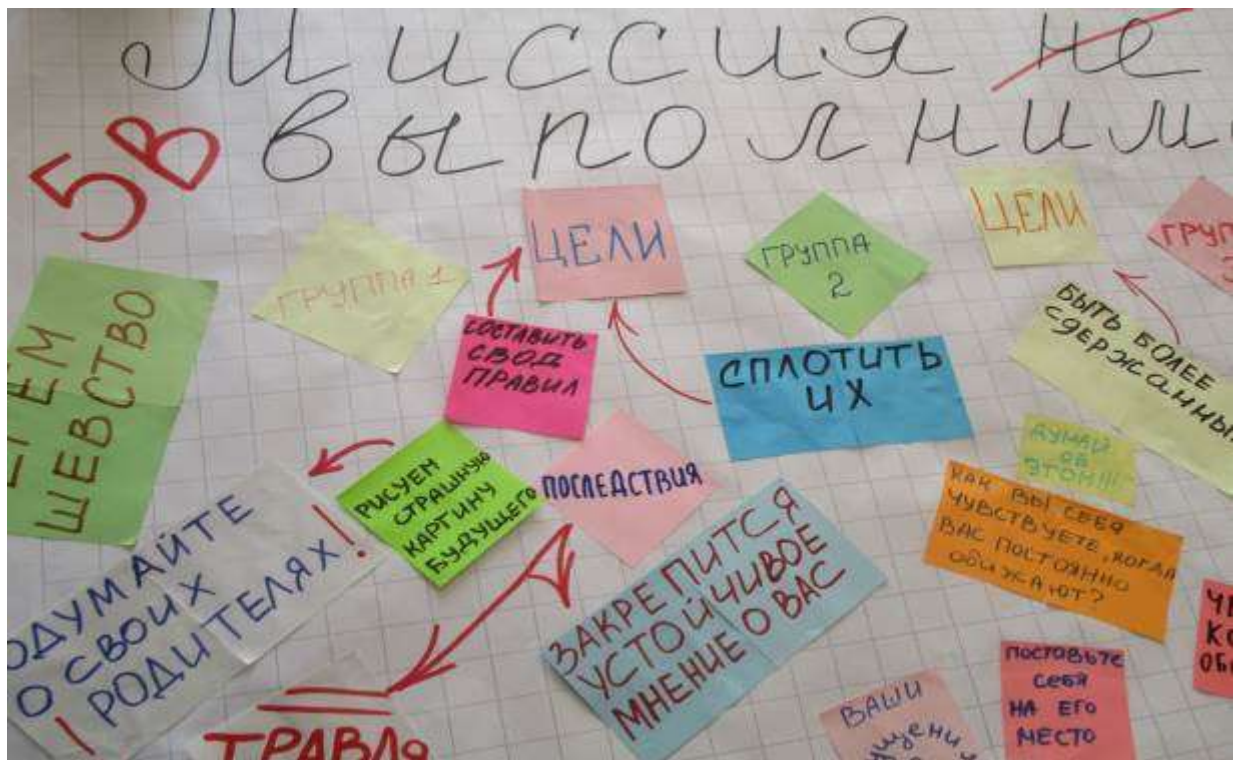 Миссия не
выполним
5В
ЦЕЛИ
ГРУППА
2
ЦЕЛИ
ГРУППА 1
ШЕВСТВО
СОСТАВИТЬ
СВОД
ПРАВИЛ
СПЛОТИТЬ
ИХ
БЫТЬ БОЛЕЕ
СДЕРЖАННЫ
РИСУЕМ
СТРАШНУЮ
КАРТИНУ
БУДУЩЕГО
ПОСЛЕДСТВИЯ
ДУМАЙ
ОБ
ЭТОМ!!!
КАК ВЫ СЕБЯ
ЧУВСТВУЕТЕ, КОГДА
ВАС ПОСТОЯННО
ОБИЖАЮТ?
ОДУМАЙТЕ
О СВОИХ
РОДИТЕЛЯХ!
ЗАКРЕПИТСЯ
УСТОЙЧИВОЕ
МНЕНИЕ О ВАС
ПОСТАВЬТЕ
СЕБЯ
НА ЕГО
МЕСТО
ВАШИ
ТРАВЛЯ